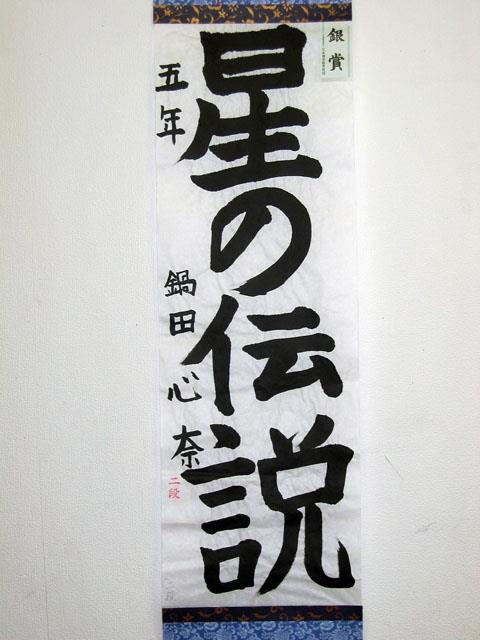 銀賞
星の伝説
五年 鍋田心奈
二段